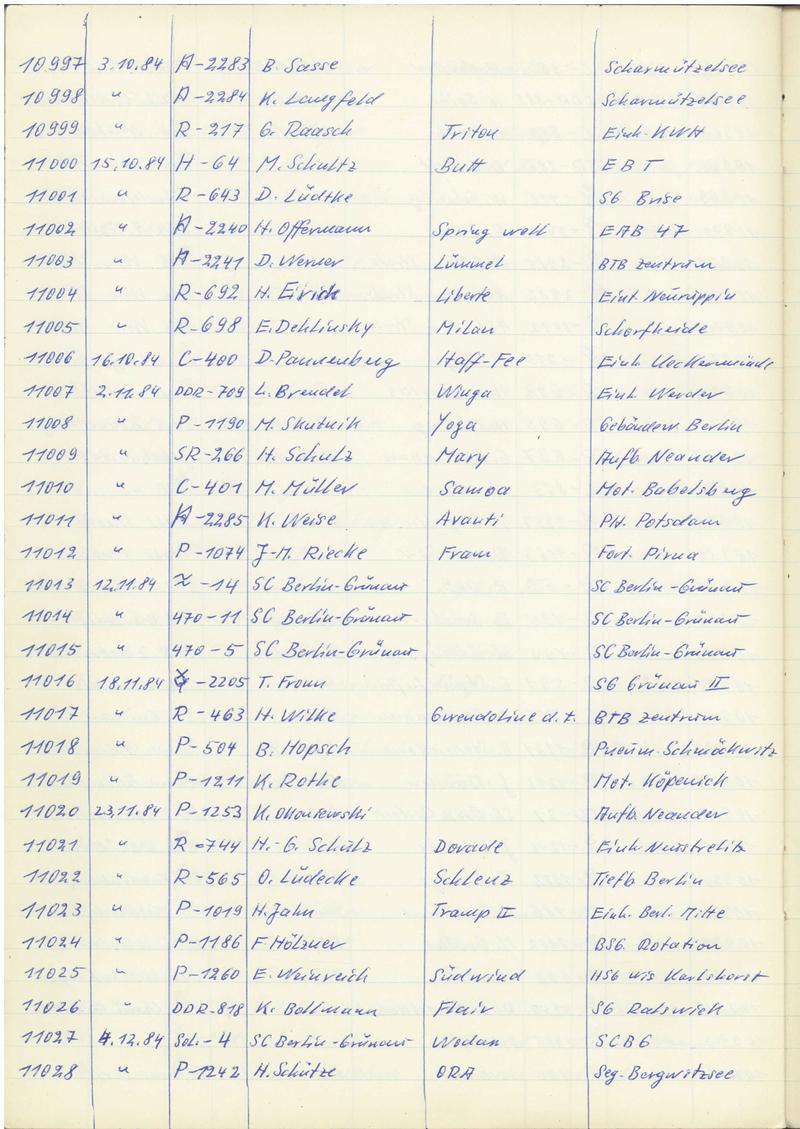 10997 3.10.84 A-2283 B. Sasse Scharmützelsee
10998 " A-2284 K. Langfeld Scharmützelsee
10999 " R-217 G. Raasch Triton Einh. KWH
11000 15.10.84 H-64 M. Schultz Butt EBT
11001 " R-643 D. Lüdtke SG Brise
11002 " A-2240 H. Offermann Spring well EAB 47
11003 " A-2241 D. Werner Lümmel BTB Zentrum
11004 " R-692 H. Eirich Liberte Einh. Neuruppin
11005 " R-698 E. Dehlinsky Milan Schorfheide
11006 16.10.84 C-400 D. Pannenberg Haff-Fee Einh. Ueckermünde
11007 2.11.84 DDR-709 L. Brendel Winga Einh. Werder
11008 " P-1190 M. Skutnik Yoga Gebäudew. Berlin
11009 " SR-266 H. Schulz Mary Aufb. Neander
11010 " C-401 M. Müller Samoa Mot. Babelsberg
11011 " A-2285 K. Weise Avanti PH. Potsdam
11012 " P-1074 J-M. Riecke Fram Fort. Pirna
11013 12.11.84 -14 SC Berlin-Grünau SC Berlin-Grünau
11014 " 470-11 SC Berlin-Grünau SC Berlin-Grünau
11015 " 470-5 SC Berlin-Grünau SC Berlin-Grünau
11016 18.11.84 -2205 T. Fronn SG Grünau II
11017 " R-463 H. Wilke Gwendoline d.t. BTB Zentrum
11018 " P-504 B. Hopsch Pneum. Schmöckwitz
11019 " P-1211 K. Rothe Mot. Köpenick
11020 23.11.84 P-1253 K. Okoniewski Aufb. Neander
11021 " R-744 H.-G. Schulz Dorade Einh. Neustrelitz
11022 " R-565 O. Lüdecke Schlenz Tiefb. Berlin
11023 " P-1019 H. Jahn Tramp II Einh. Berl. Mitte
11024 " P-1186 F Hölzner BSG. Rotation
11025 " P-1260 E. Weinreich Südwind HSG wis Karlshorst
11026 " DDR-818 K. Bollmann Flair SG Ralswiek
11027 4.12.84 Sol.-4 SC Berlin-Grünau Wodan SCBG
11028 " P-1242 H. Schütze ORA Seg. Bergwitzsee